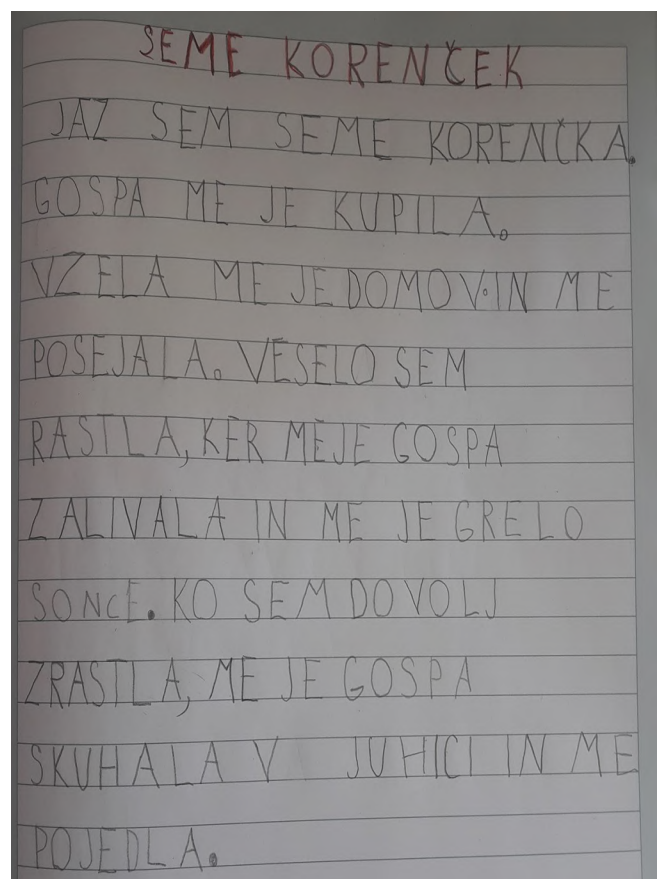 SEME KORENČEK
JAZ SEM SEME KORENČKA.
GOSPA ME JE KUPILA.
VZELA ME JE DOMOV IN ME
POSEJALA. VESELO SEM
RASTLA, KER ME JE GOSPA
ZALIVALA IN ME JE GRELO
SONCE. KO SEM DOVOLJ
ZRASTLA, ME JE GOSPA
SKUHALA V JUHICI IN ME
POJEDLA.